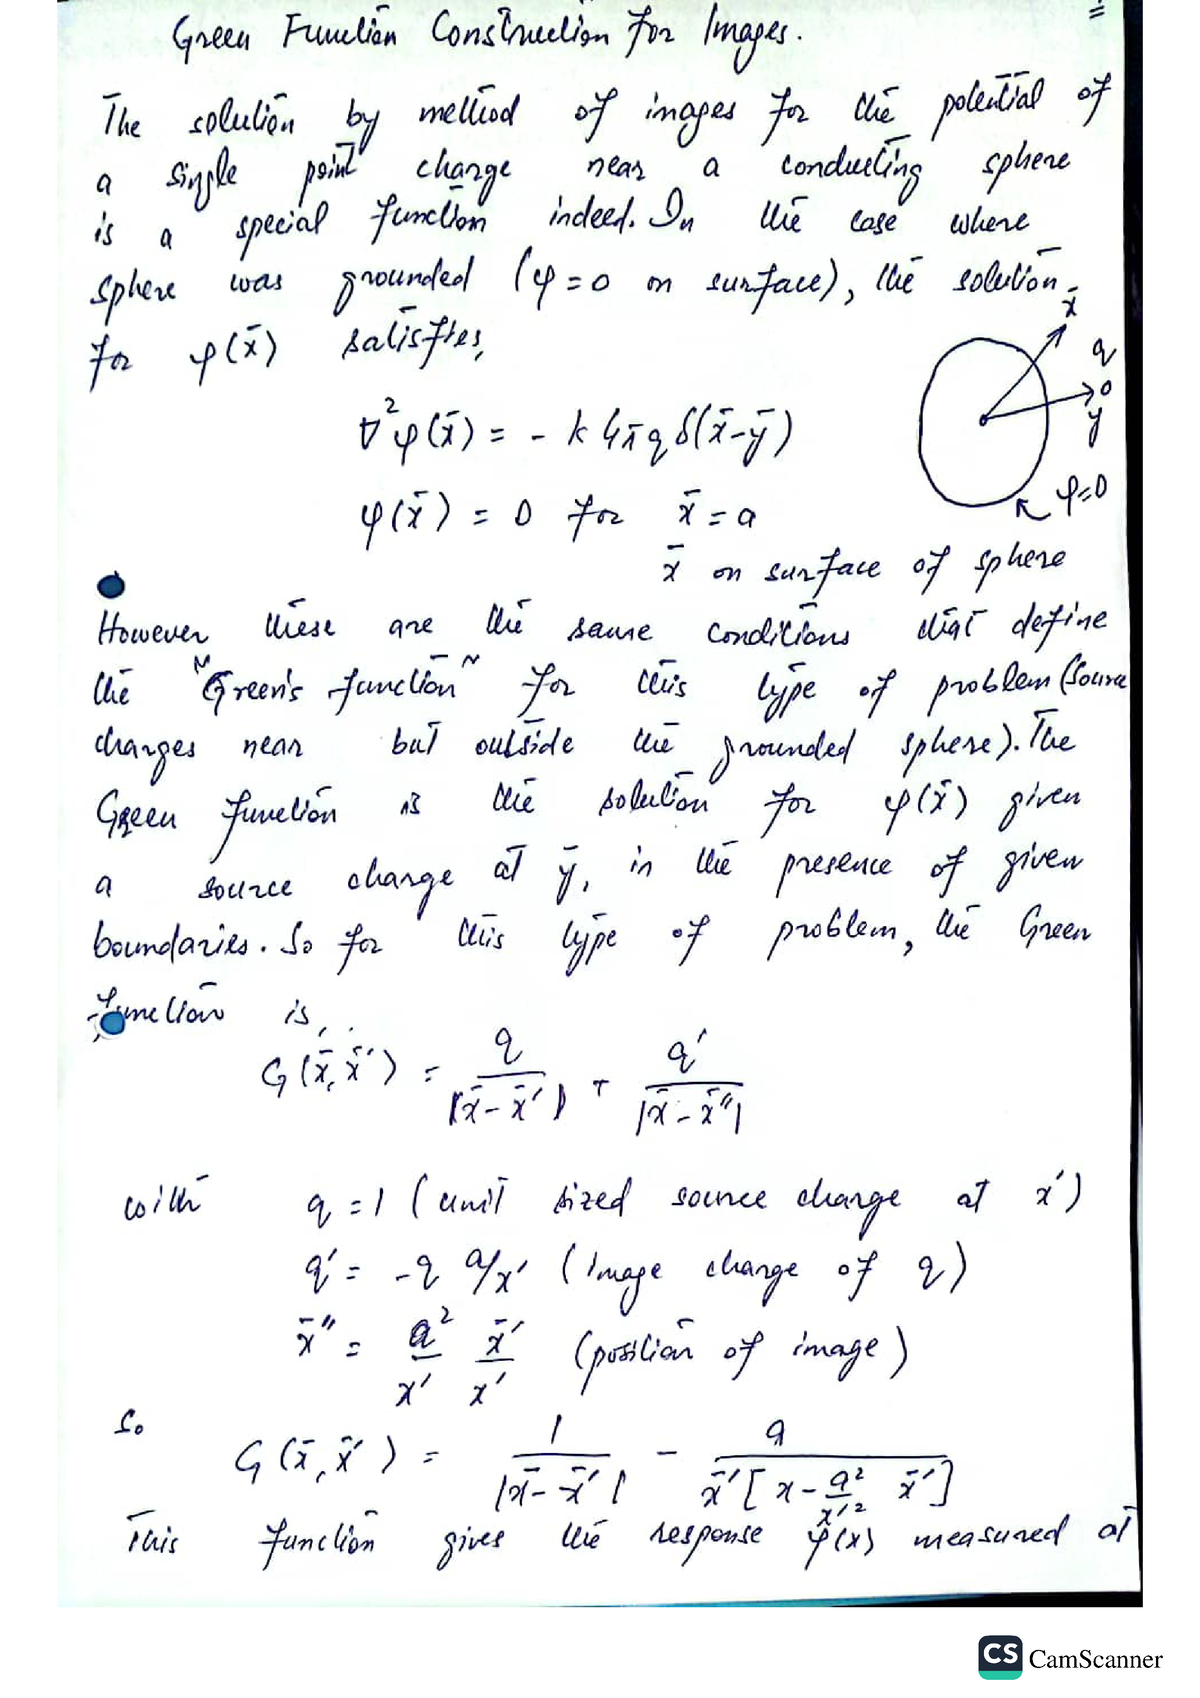 Green Function Construction for Images.
The solution by method of images for the potential of
a single point charge near a conducting sphere
is a special function indeed. In the case where
sphere was grounded (φ=0 on surface), the solution
for φ(x̄) satisfies,
x̄
q
y
φ=0
∇²φ(x̄) = - k 4π q δ(x̄-ȳ)
φ(x̄) = 0 for x̄ = a
x̄ on surface of sphere
However these are the same conditions that define
the "Green's function" for this type of problem (source
charges near but outside the grounded sphere). The
Green function is the solution for φ(x̄) given
a source charge at ȳ, in the presence of given
boundaries. So for this type of problem, the Green
function is,
G(x̄, x̄′) = q/|x̄-x̄′| + q′/|x̄-x̄″|
with q = 1 (unit sized source charge at x′)
q′ = -q a/x′ (image charge of q)
x̄″ = a²/x′ x̄′/x′ (position of image)
So
G(x̄, x̄′) = 1/|x̄-x̄′| - a/x̄′[x-a²/x′² x̄′]
This function gives the response φ(x) measured at
CS CamScanner